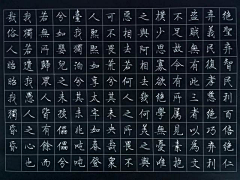 絕聖棄智民利百倍絕仁
棄義民復孝慈絕巧棄利
盜賊無有此三者以為文
不足故令有所屬見素抱
樸少私寡欲絕學無憂唯
之與阿相去幾何美之與
惡相去若何人之所畏不
可不畏荒兮其未央哉眾
人熙熙如享太牢如春登
臺我獨泊兮其未兆沌沌
兮如嬰兒之未孩儽儽兮
若無所歸眾人皆有餘而
我獨若遺我愚人之心也
哉俗人昭昭我獨昏昏